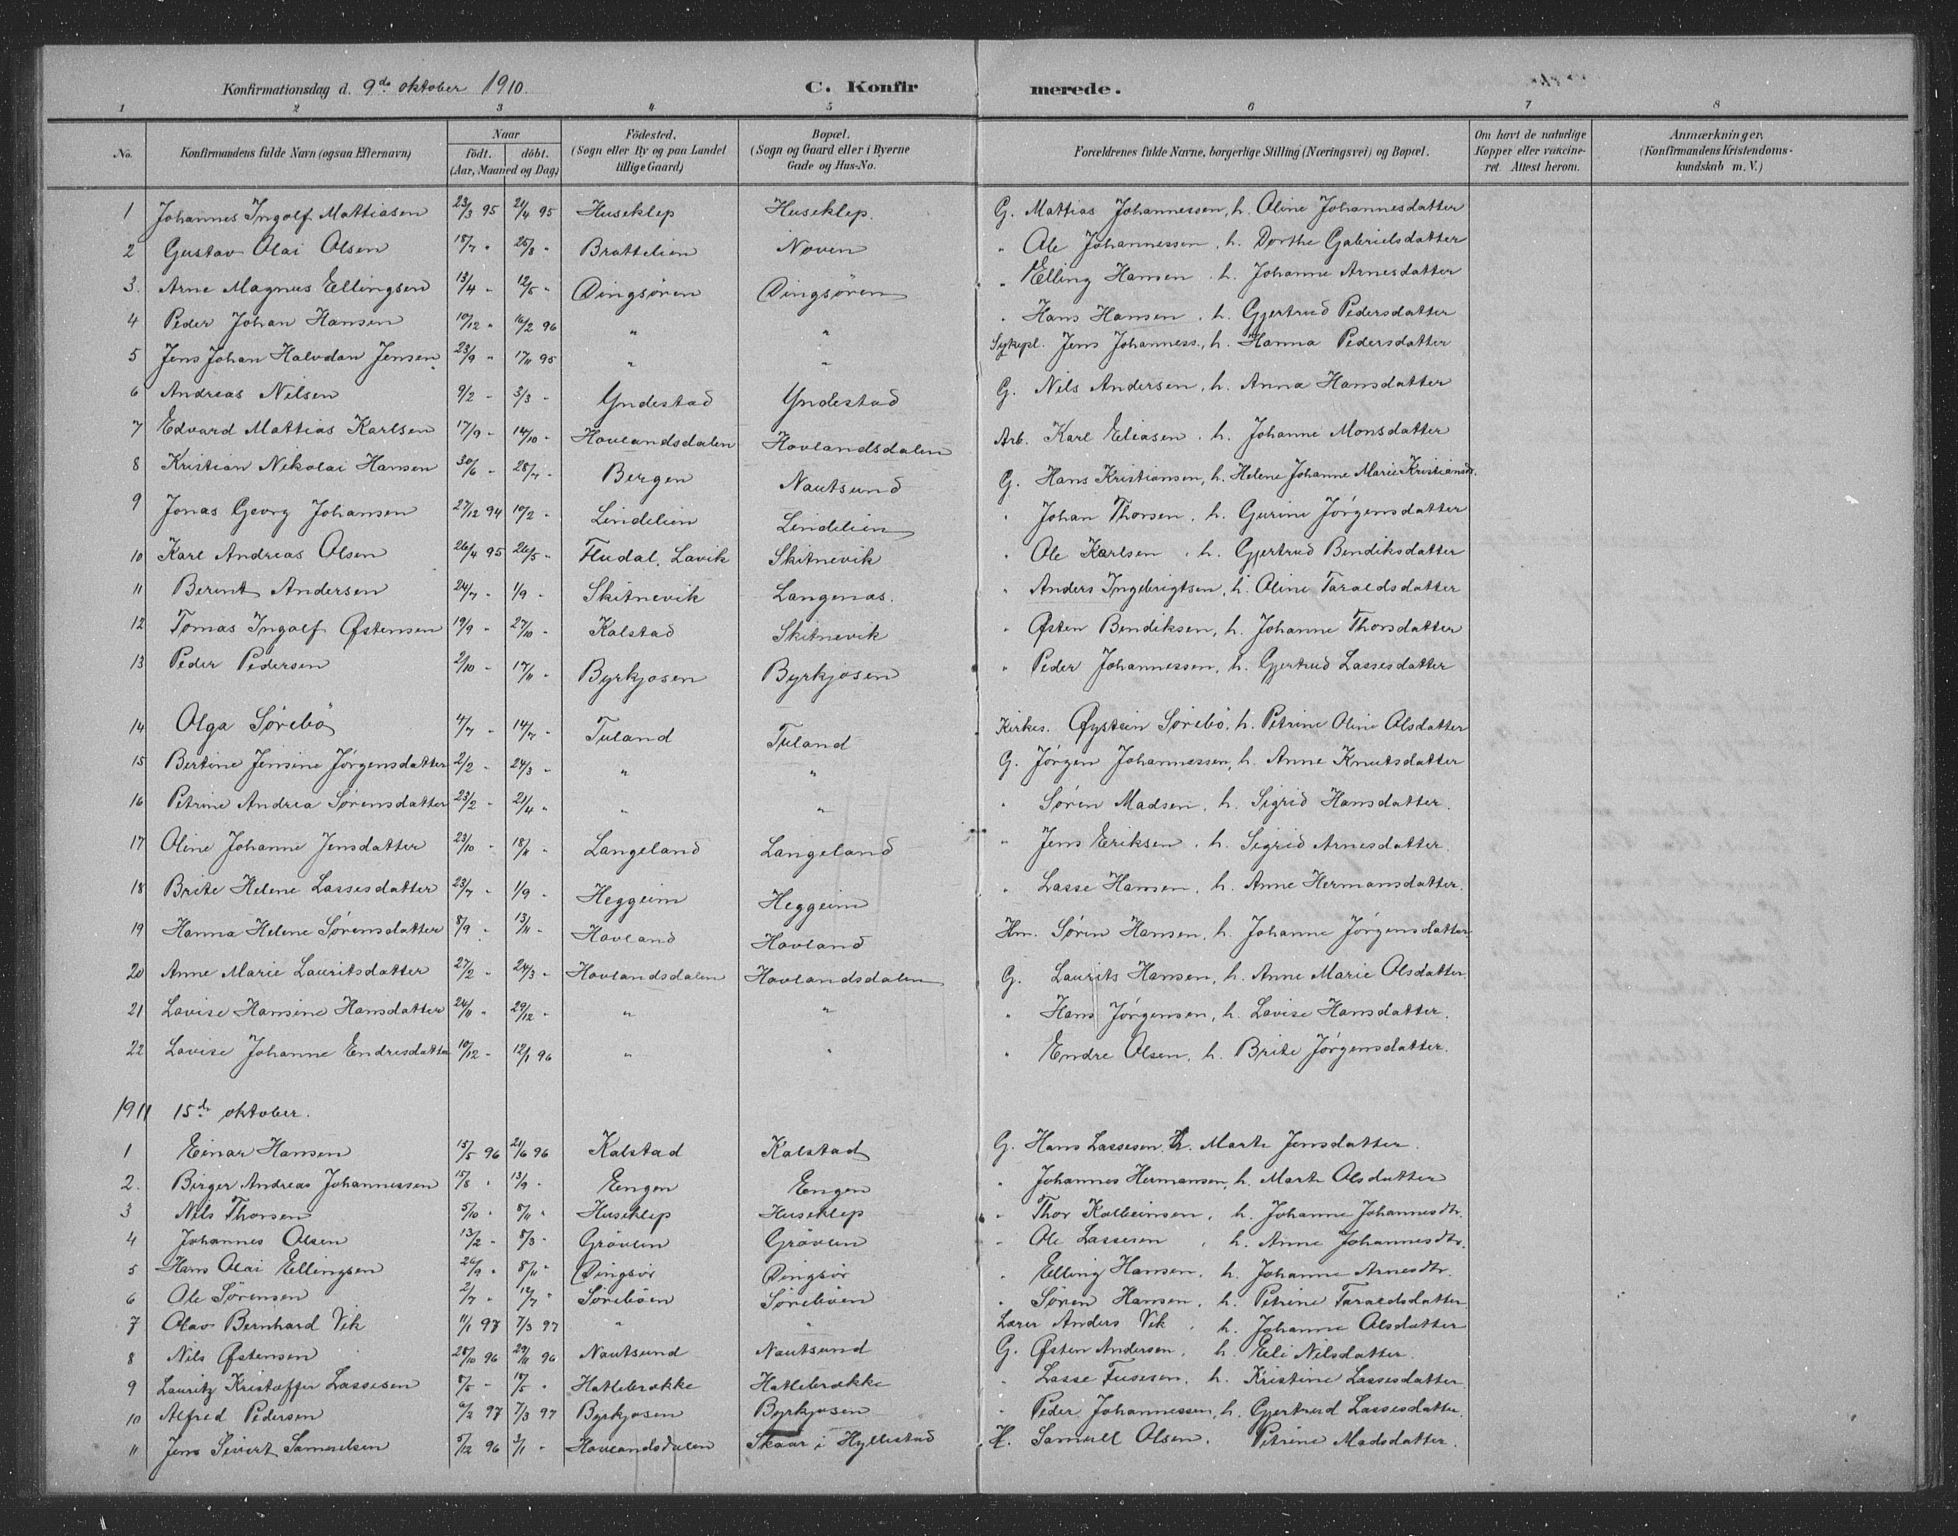 Konfirmationsdag d. 9de oktober 1910. C. Konfirmerede.
1 2 3 4 5 6 7 8
No. Konfirmandens fulde Navn (ogsaa Efternavn) Naar født. døbt. (Aar, Maaned og Dag) Födested. (Sogn eller By og paa Landet tillige Gaard) Bopæl. (Sogn og Gaard eller i Byerne Gade og Hus-No. Forældrenes fulde Navne, borgerlige Stilling (Næringsvei) og Bopæl. Om havt de naturlige Kopper eller vakcineret. Attest herom. Anmærkninger. (Konfirmandens Kristendomskundskab m. V.)
1 Johannes Ingolf Mattiasen 23/3 95 21/4 95 Huseklep Huseklep. G. Mattias Johannessen, h. Oline Johannesdatter
2 Gustav Olai Olsen 18/7 " 25/8 " Brattelien Noven " Ole Johannessen, h. Dorthe Gabrielsdatter
3. Arne Magnus Ellingsen 13/4 " 12/5 " Dingsøren Dingsøren " Elling Hansen, h. Johanne Arnesdatter
4 Peder Johan Hansen 10/12 " 16/2 96 " " " Hans Hansen, h. Gjertrud Pedersdatter
5 Jens Johan Halvdan Jensen 23/9 " 17/11 95 " " Sykepl. Jens Johanness., h. Hanna Pedersdatter
6 Andreas Nilsen 9/2 " 3/3 " Yndestad Yndestad G. Nils Andersen, h. Anna Hansdatter
7 Edvard Mattias Karlsen 17/9 " 14/10 " Hovlandsdalen Hovlandsdalen Arb. Karl Eliasen, h. Johanne Monsdatter
8 Kristian Nikolai Hansen 30/6 " 28/7 " Bergen Nautsund G. Hans Kristiansen, h. Helene Johanne Marie Kristiansdr.
9 Jonas Georg Johansen 27/12 94 10/2 " Lindelien Lindelien " Johan Thorsen, h. Gurine Jørgensdatter
10 Karl Andreas Olsen 26/4 95 26/5 " Fludal, Lavik Skitnevik " Ole Karlsen, h. Gjertrud Bendiksdatter
11 Berent Andersen 24/7 " 1/9 " Skitnevik Langenas. " Anders Ingebrigtsen, h. Oline Taraldsdatter
12 Tomas Ingolf Østensen 19/9 " 27/10 " Kalstad Skitnevik " Østen Bendiksen, h. Johanne Thorsdatter
13 Peder Pedersen 2/10 " 17/11 " Byrkjosen Byrkjosen " Peder Johannessen, h. Gjertrud Lassesdatter
14 Olga Sørebø 4/7 " 14/7 " Tuland Tuland Kirkes. Øystein Sørebö, h. Petrine Oline Olsdatter
15 Bertine Jensine Jørgensdatter 2/2 " 24/3 " " " G. Jørgen Johannessen, h. Anne Knutsdatter
16 Petrine Andrea Sørensdatter 23/2 " 21/4 " " " " Søren Madsen, h. Sigrid Hansdatter.
17 Oline Johanne Jensdatter 23/10 " 18/11 " Langeland Langeland " Jens Eriksen, h. Sigrid Arnesdatter.
18 Brite Helene Lassesdatter 23/7 " 1/9 " Heggeim Heggeim " Lasse Hansen, h. Anne Hermansdatter.
19 Hanna Helene Sørensdatter 8/9 " 13/11 " Hovland Hovland Hm. Sørin Hansen, h. Johanne Jørgensdatter
20 Anne Marie Lauritsdatter 27/2 " 24/3 " Hovlandsdalen Hovlandsdalen G. Laurits Hansen, h. Anne Marie Olsdatter
21 Lovise Hansine Hansdatter 24/11 " 29/12 " " " " Hans Jørgensen, h. Lovise Hansdatter.
22 Lovise Johanne Endresdatter 10/12 " 12/1 96 " " " Endre Olsen, h. Brite Jørgensdatter.
1911 15de oktober.
1 Einar Hansen 15/5 96 21/6 96 Kalstad Kalstad G. Hans Lassesen, h. Marte Jensdatter.
2. Birger Andreas Johannessen 15/8 " 13/9 " Engen Engen " Johannes Hermansen, h. Marte Olsdatter
3 Nils Thorsen 5/10 " 8/11 " Huseklep Huseklep " Thor Kolbeinsen, h. Johanne Johannesdtr.
4 Johannes Olsen 13/2 " 8/3 " Grövlen Grövlen " Ole Lassesen, h. Anne Johannesdtr.
5 Hans Olai Ellingsen 26/9 " 8/11 " Dingsör Dingsör " Elling Hansen, h. Johanne Arnesdtr.
6 Ole Sørensen 2/7 " 12/7 " Söreböen Söreböen " Søren Hansen, h. Petrine Taraldsdatter
7 Olav Bernhard Vik 11/1 97 7/3 97 " " Lærer Anders Vik, h. Johanne Olsdatter
8 Nils Østensen 28/10 96 29/11 96 Nautsund Nautsund G. Østen Andersen, h. Eli Nilsdatter.
9 Lauritz Kristoffer Lassesen 8/5 " 17/5 " Hatlebrække Hatlebrække " Lasse Fusesen, h. Kristine Lassesdatter
10 Alfred Pedersen 6/2 97 7/3 97 Byrkjosen Byrkjosen " Peder Johannessen, h. Gjertrud Lassesdatter.
11 Jens Sivert Samuelsen 5/12 96 3/1 " Hovlandsdalen Skaar i Hyllestad H. Samuel Olsen, Petrine Madsdatter.